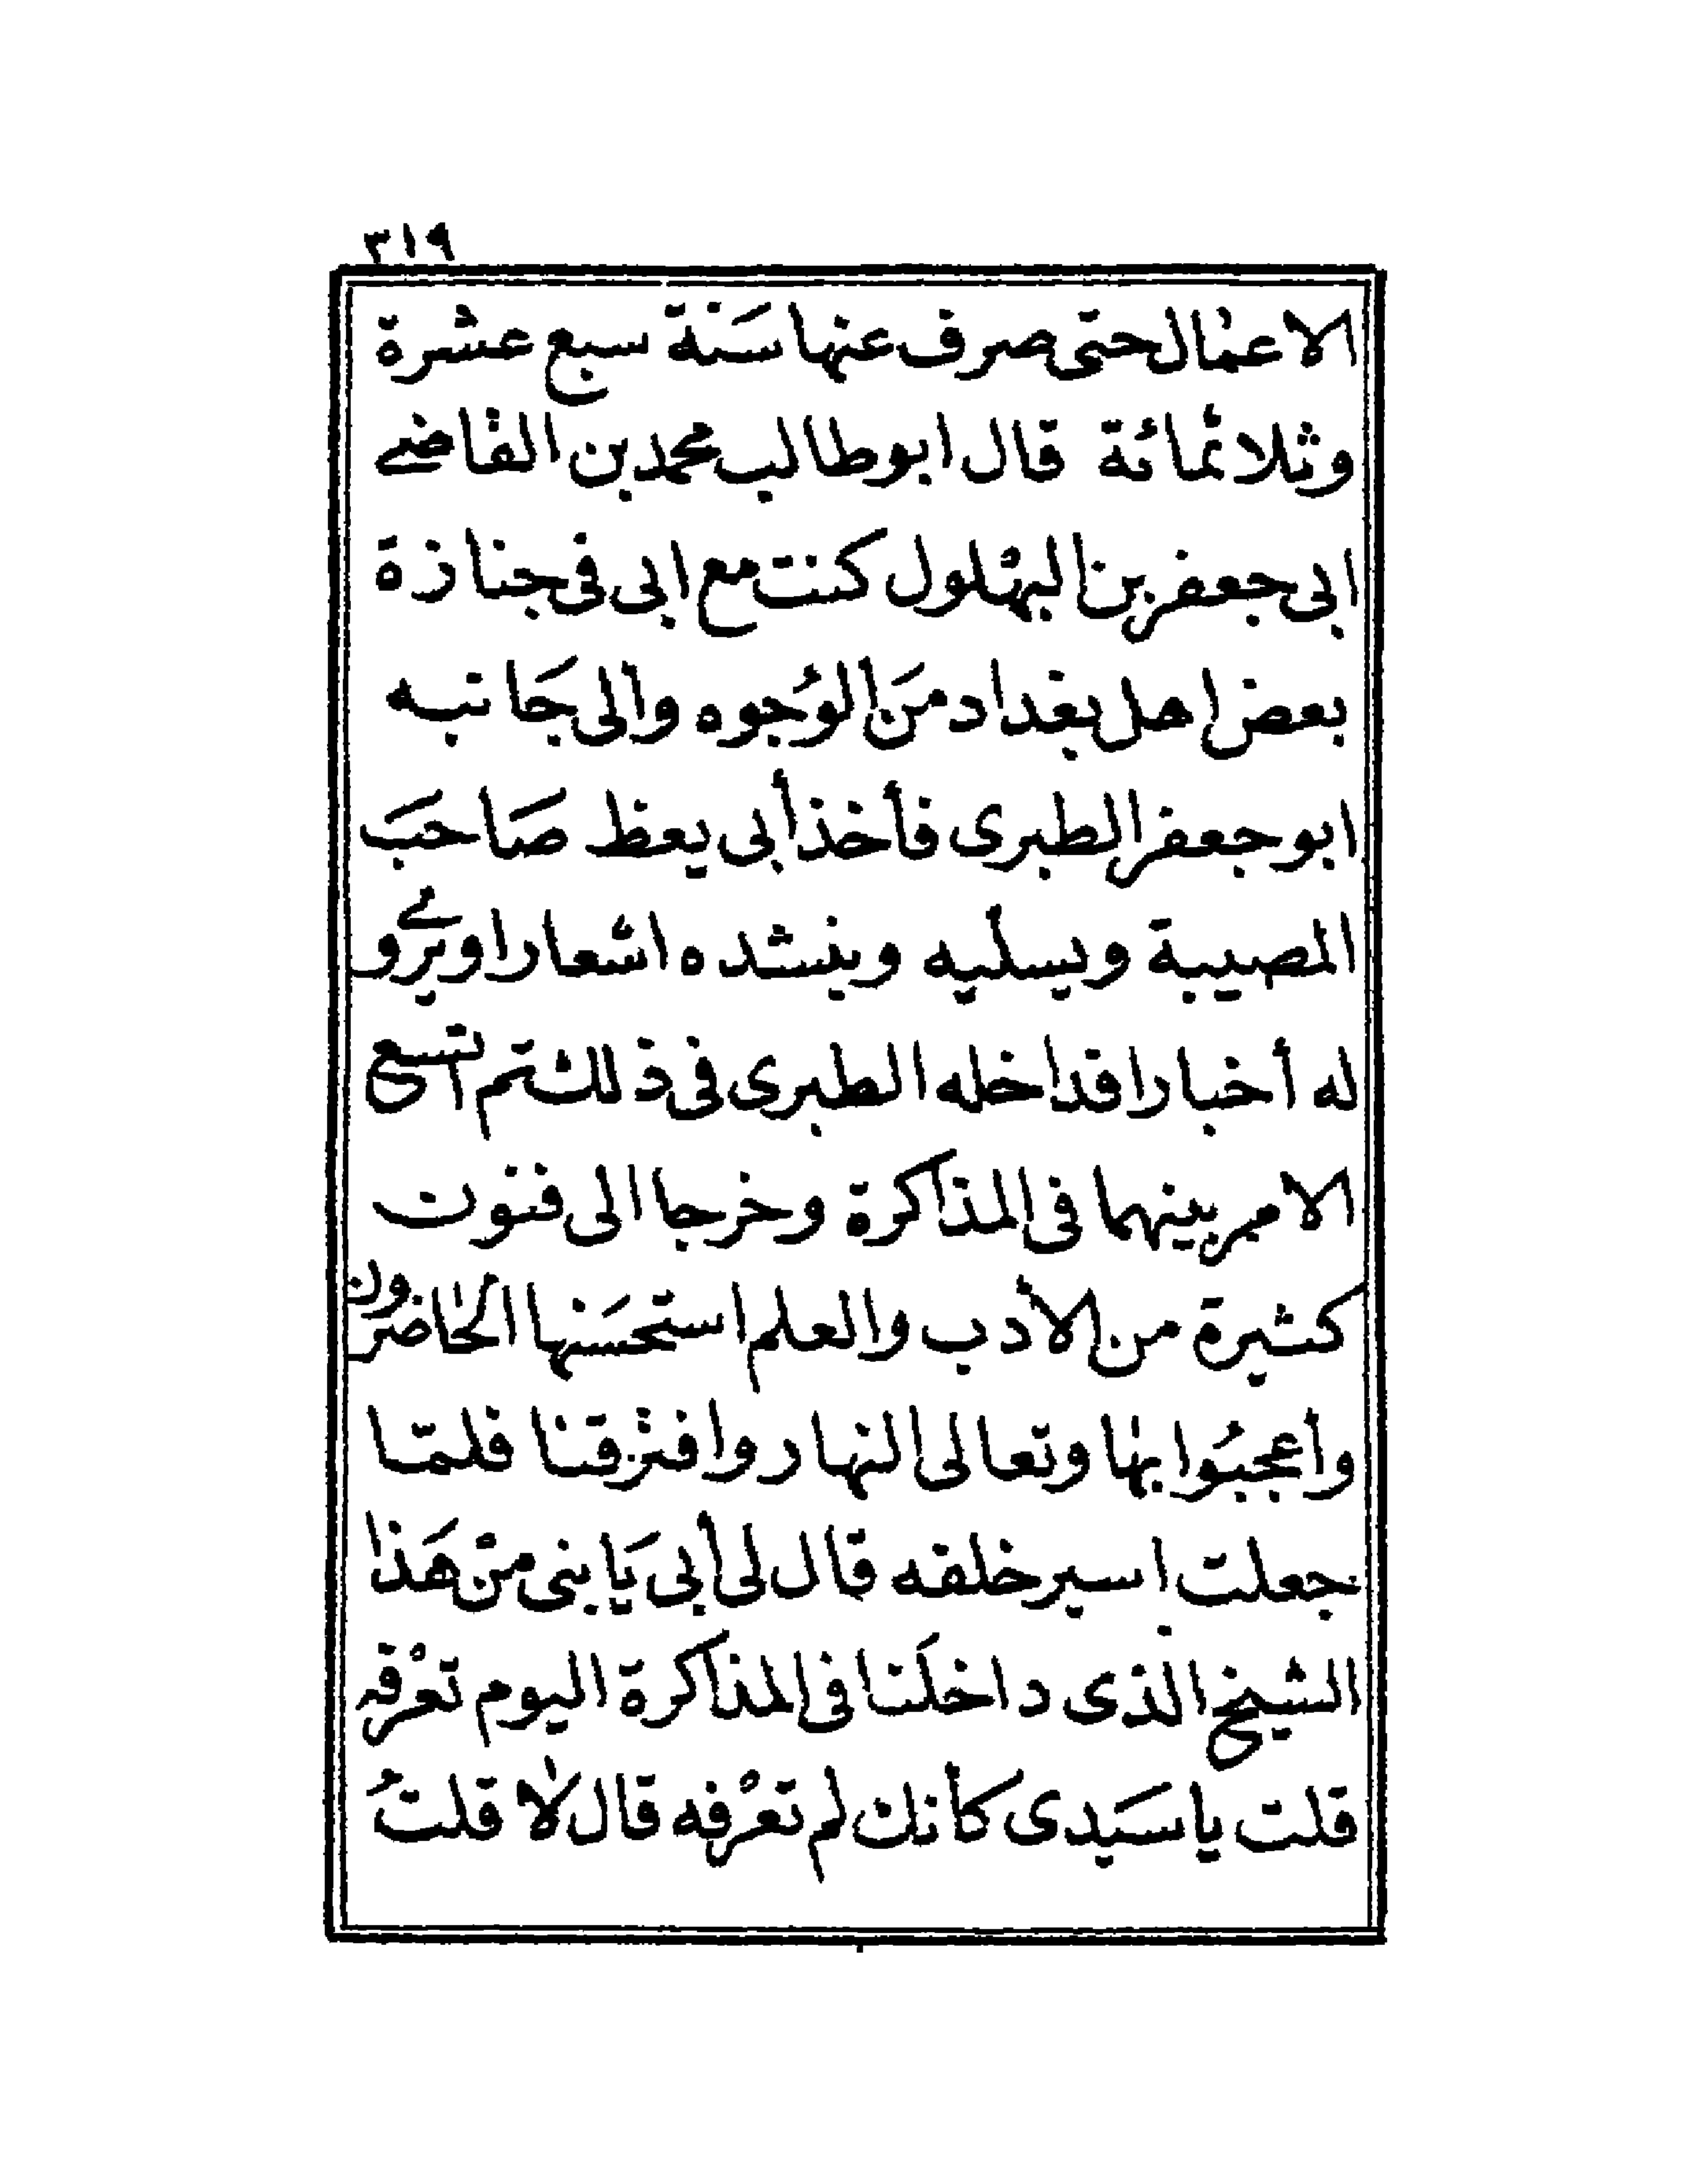 ٣١٩
الاعمال حتى صرف عنها سَنة سبع عشرة
وثلاثمائة قال ابوطالب محمد بن القاضى
ابى جعفر بن البهلول كنت مع ابى فى جنازة
بعض اهل بغداد منَ الوُجوه والى جَانبه
ابو جعفر الطبرى فأخذ أبى يعظ صَاحبَ
المصيبة ويسليه وينشده اشعارا ويروى
له أخبارا قد اخله الطبرى فى ذلك ثم اتسع
الامر بينهما فى المذاكرة وخرجا الى فنون
كثيرة من الأدب والعلم استحسَنها الحاضرون
وأعجبُوا بها وتعالى النهار وافترقنا فلمّا
جعلت اسير خلفه قال لى أبى يَا بنى منْ هَذا
الشيخ الذى داخلَنا فى المذاكرة اليوم تعْرفه
قلت يا سَيدى كأنك لم تعْرفه قال لا قلتُ